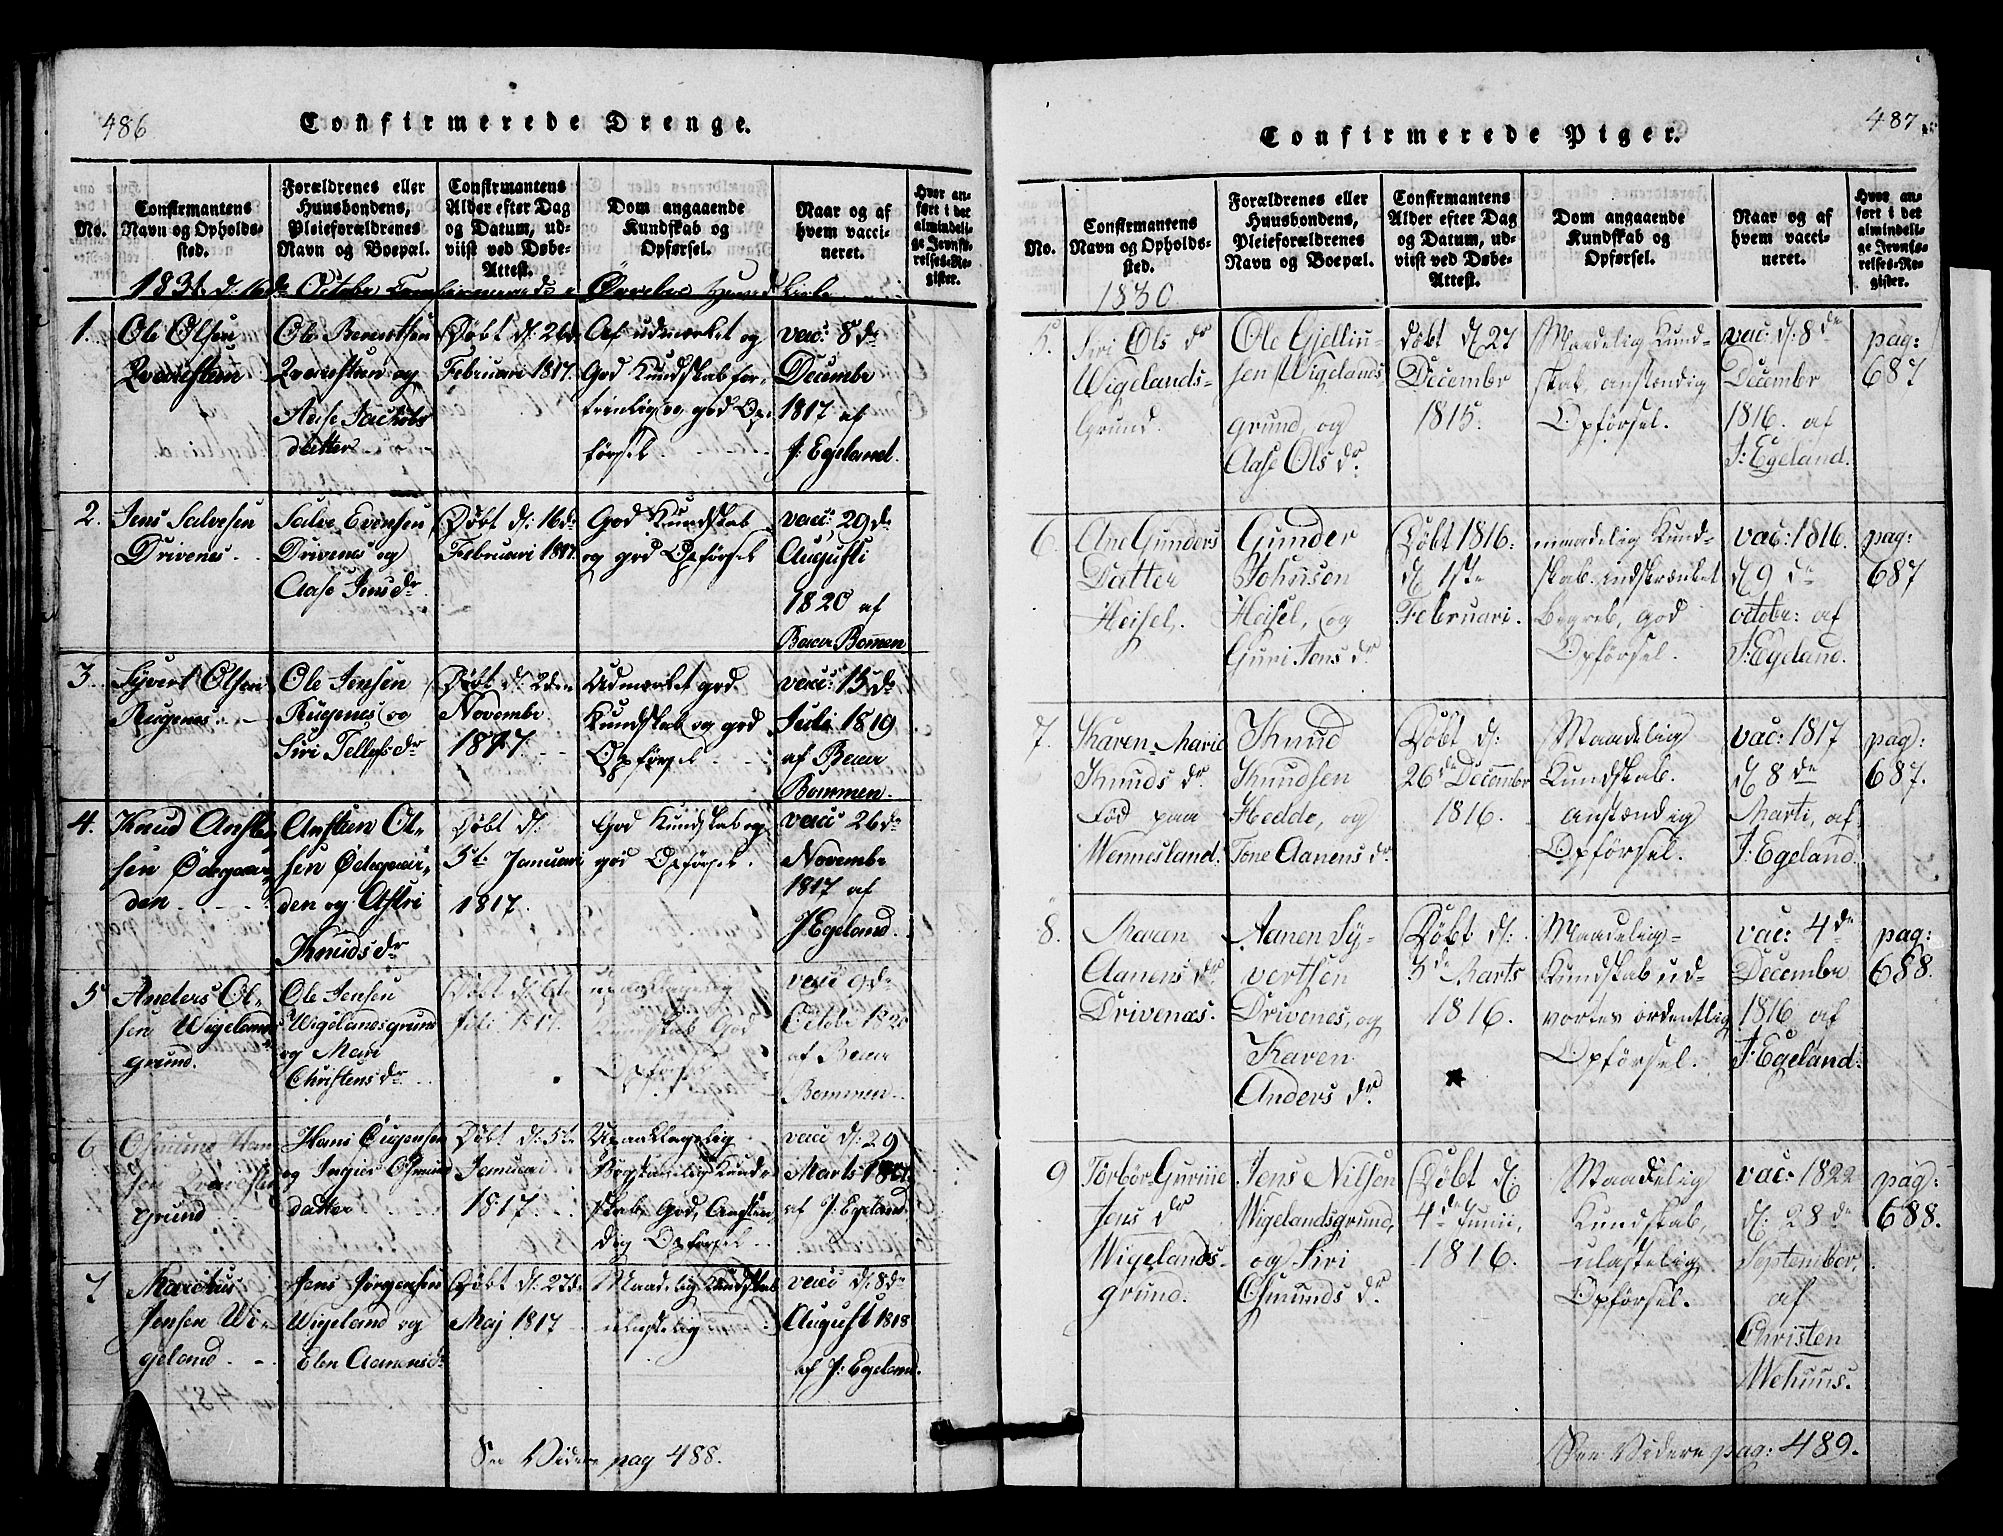 486
Confirmerede Drenge.
No.
Confirmantens
Navn og Opholds-
sted.
Forældrenes eller
Huusbondens,
Pleieforældrenes
Navn og Boepæl.
Confirmantens
Alder efter Dag
og Datum, ud-
viist ved Døbe-
Attest.
Dom angaaende
Kundskab og
Opførsel.
Naar og af
hvem vacci-
neret.
Hvor an-
ført i det
almindeli-
ge Jevnfø-
relses-Re-
gister.
1831 d: 16de October
1.
Ole Olsen
Ole
og
Jachobs
datter
Døbt d: 26de
Februari 1817.
Af udmærket og
God Kundskab
og god Op-
førsel
vac: 8de
Decembr
1817 af
J. Egeland.
2.
Jens Salvesen
Drivenes
Salve Evensen
Drivenes og
Aase Jensdr
Døbt d: 16de
Februari 1817.
God Kundskab
og god Opførsel
vac: 29de
Augusti
1820 af
Bommen
3
Syvert Olsen
Rugenes
Ole Jensen
Rugenes og
Siri Tellefsdr
Døbt d: 2den
Novembr
1817
Udmærket god
Kundskab og god
Opførsel
vac: 15de
Juli 1819
af
Bommen.
4.
Knud
sen Ødegaar-
den
Ansten Ol-
sen Ødegaar-
den og Astri
Knudsdr
Døbt d:
5te Januari
1817.
God Kundskab og
god Opførsel.
vac 26de
Novembr
1817 af
J Egeland.
5
Ol-
sen Wigelands
grund.
Ole Jensen
Wigelandsgrund
og Mari
Christensdr
Døbt d: 6te
1817.
upaaklagelig
Kundskab God
Opførsel
vac 9de
Octobr 1820
af
Bommen
6
Osmund Han
sen
grund
Hans
og Inger Osmund
datter
Døbt d: 5te
Januari
1817
Upaaklagelig
Kund-
skab, God, Anstæn
dig Opførsel
vac d: 29
Marts
af J: Egeland
7
Marcus
Jensen Wi-
geland.
Jens Jørgensen
Wigeland og
Elen Aanensdr
Døbt d: 27de
Maj 1817
Maadelig Kundskab
ulastelig
vac d: 8de
August 1818
af J: Egeland.
See Videre pag 488.
487
Confirmerede Piger.
No.
Confirmantens
Navn og Opholds-
sted.
Forældrenes eller
Huusbondens,
Pleieforældrenes
Navn og Boepæl.
Confirmantens
Alder efter Dag
og Datum, ud-
viist ved Døbe-
Attest.
Dom angaaende
Kundskab og
Opførsel.
Naar og af
hvem vacci-
neret.
Hvor an-
ført i det
almindeli-
ge Jevnfø-
relses-Re-
gister.
1830
5.
Siri Ols dr
Wigelands-
grund.
Ole Gjellin-
sen Wigelands
grund, og
Aase Ols dr
døbt d 27
Decembr
1815.
Maadelig Kund-
skab, anstændig
Opførsel.
vac: d: 8de
Decembr
1816. af
J: Egeland.
pag:
687
6.
Ane Gunders
Datter
Heisel.
Gunder
Johnsen
Heisel, og
Guri Jens dr
Døbt 1816.
d 1ste
Februari.
maadelig Kund-
skab, indskrænket
Begreb, god
Opførsel.
vac: 1816.
d 9de
octobr: af
J: Egeland.
pag:
687
7.
Karen Marie
Knuds dr
Fød paa
Wennesland.
Knud
Knudsen
Hedde, og
Tone Aanens dr
Døbt d:
26de Decembr
1816.
Maadelig
Kundskab.
anstændig
Opførsel.
vac: 1817
d 8de
Marti, af
J: Egeland.
pag:
687.
8.
Maren
Aanens dr
Drivenæs.
Aanen Sy-
vertsen
Drivenes, og
Karen
Anders dr
Døbt d:
3de Marts
1816.
Maadelig
Kundskab ud-
vortes ordentlig
Opførsel.
vac: 4de
Decembr
1816 af
J: Egeland.
pag:
688.
9
Torbor Gurine
Jens dr
Wigelands-
grund.
Jens Nilsen
Wigelandsgrund,
og Siri
Osmunds dr
Døbt d:
4de Junii,
1816.
Maadelig
Kundskab,
ulastelig
Opførsel.
vac: 1822
d: 28de
September,
af
Christen
Wehuus.
pag:
688.
See Videre pag: 489.